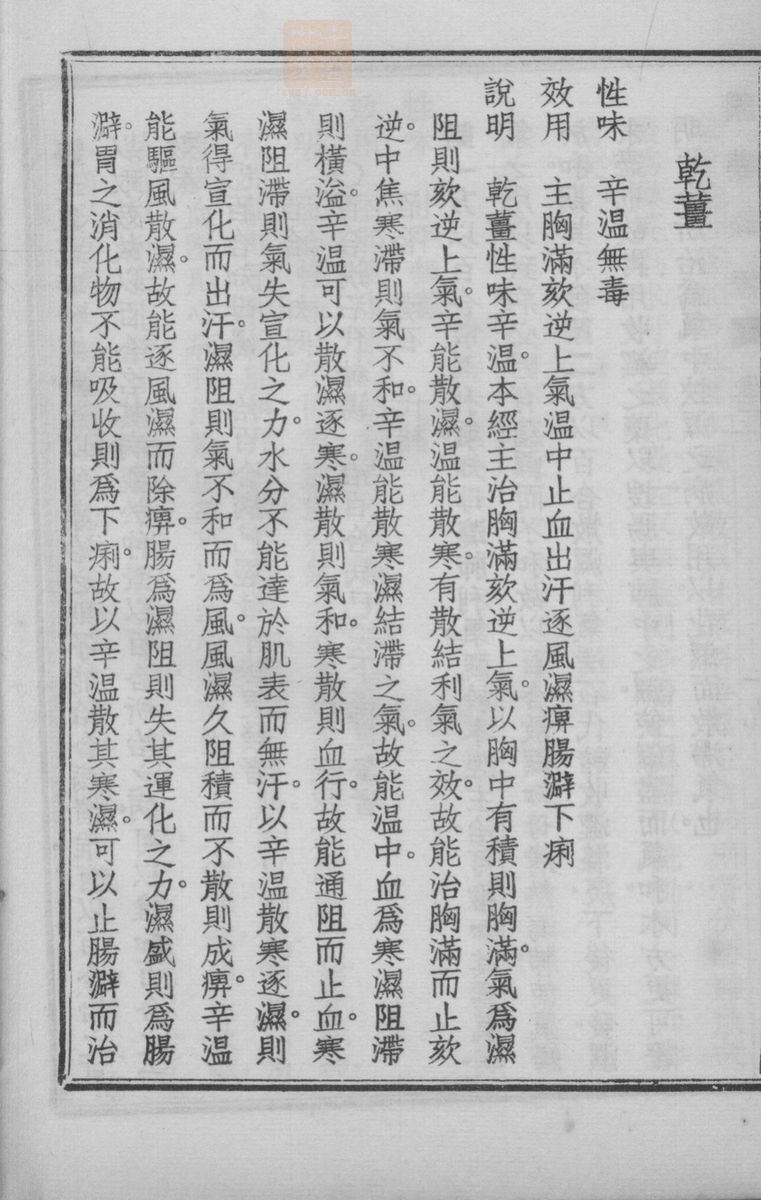 乾薑
性味　辛温無毒
效用　主胸滿欬逆上氣温中止血出汗逐風濕痹腸澼下痢
說明　乾薑性味辛温。本經主治胸滿欬逆上氣。以胸中有積則胸滿。氣爲濕
阻則欬逆上氣。辛能散濕。温能散寒。有散結利氣之效。故能治胸滿而止欬
逆。中焦寒滯則氣不和。辛温能散寒濕結滯之氣。故能温中。血爲寒濕阻滯
則橫溢。辛温可以散濕逐寒。濕散則氣和。寒散則血行。故能通阻而止血。寒
濕阻滯則氣失宣化之力。水分不能達於肌表而無汗。以辛温散寒逐濕。則
氣得宣化而出汗。濕阻則氣不和而爲風。風濕久阻積而不散則成痹。辛温
能驅風散濕。故能逐風濕而除痹。腸爲濕阻則失其運化之力。濕盛則爲腸
澼。胃之消化物不能吸收則爲下痢。故以辛温散其寒濕。可以止腸澼而治